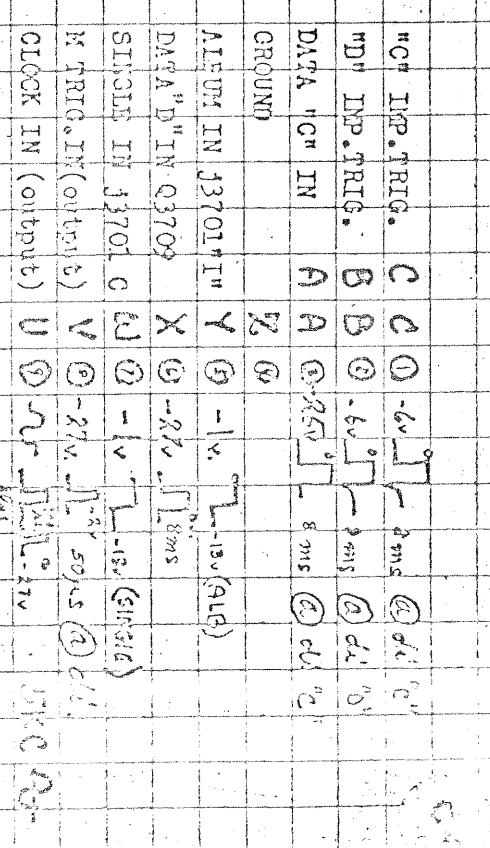 "C" INP.TRIG. C C ① -6v 0 2ms @ di "C"
"D" INP.TRIG. B B ② -6v 0 2ms @ di "D"
DATA "C" IN A A ③ -25v 0 8ms @ di "C"
GROUND Z ④
ALBUM IN J3701"I" Y ⑤ -1v. -13v (ALB)
DATA"D"IN Q3709 X ⑥ -27v 0v 8ms
SINGLE IN J3701 C W ⑦ -1v -13v (SINGLE)
M TRIG.IN(output) V ⑧ -27v. -2v 50µs @ di
CLOCK IN (output) U ⑨ 0 -27v 5KC